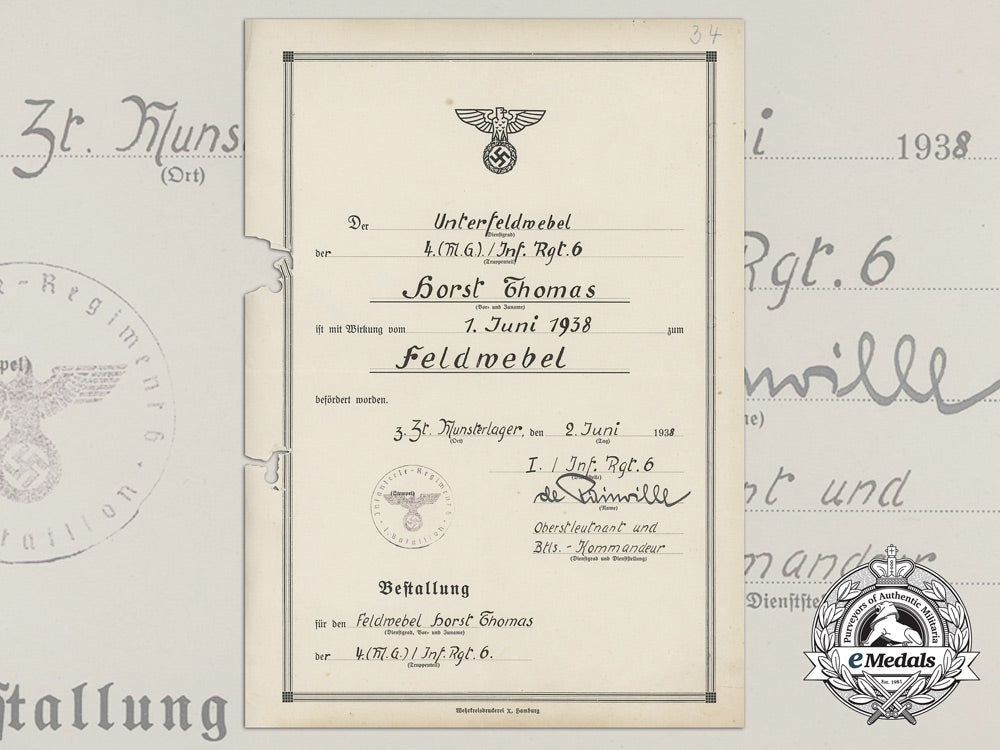 34
Der Unterfeldwebel
(Dienstgrad)
der 4.(M.G.)./Inf. Rgt. 6
(Truppenteil)
Horst Thomas
(Vor- und Zuname)
ist mit Wirkung vom 1. Juni 1938 zum
Feldwebel
befördert worden.
z. Zt. Munsterlager, den 2. Juni 1938
(Ort) (Tag)
I. / Inf. Rgt. 6
(Dienststelle)
(Stempel)
Infanterie-Regiment 6
I. Bataillon
de
(Name)
Oberstleutnant und
Btls. - Kommandeur
(Dienstgrad und Dienststellung)
Bestallung
für den Feldwebel Horst Thomas
(Dienstgrad, Vor- und Zuname)
der 4.(M.G.)/Inf. Rgt. 6.
(Truppenteil)
Wehrkreisdruckerei X, Hamburg
Zt. Muns
(Ort)
1938
Rgt. 6
und
Dienstste
stallung
Purveyors of Authentic Militaria
eMedals